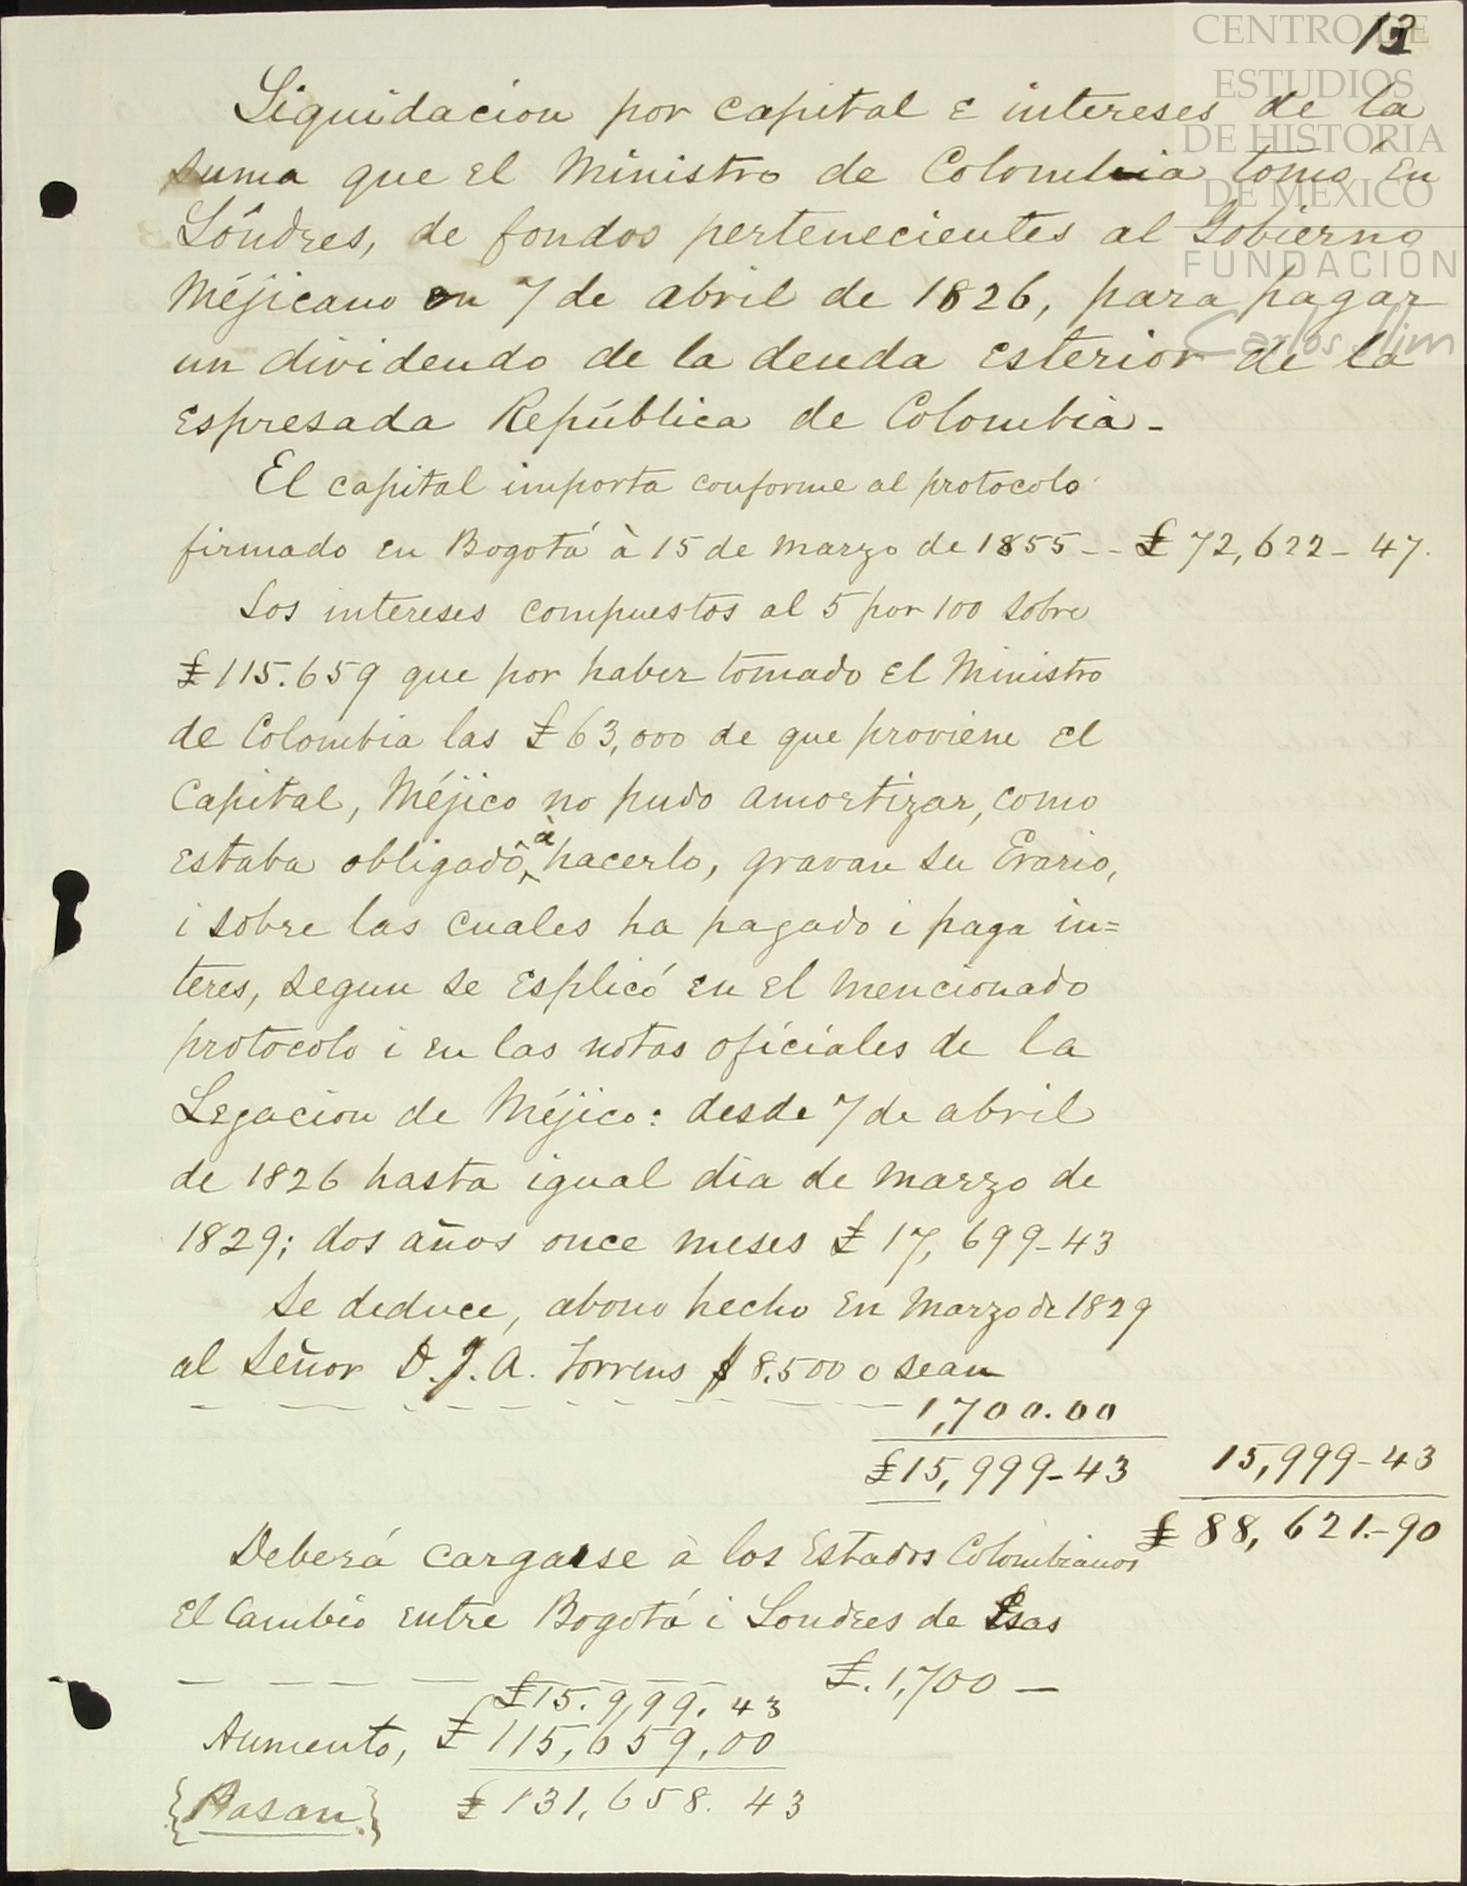 12
CENTRO DE
ESTUDIOS
DE HISTORIA
DE MEXICO
FUNDACIÓN
Carlos Slim
Liquidacion por capital e intereses de la
suma que el Ministro de Colombia tomó en
Lóndres, de fondos pertenecientes al Gobierno
Méjicano en 7 de abril de 1826, para pagar
un dividendo de la deuda esterior de la
espresada República de Colombia-
El capital importa conforme al protocolo
firmado en Bogotá à 15 de marzo de 1855 -- £ 72,622-47.
Los intereses compuestos al 5 por 100 sobre
£ 115.659 que por haber tomado el Ministro
de Colombia las £ 63,000 de que proviene el
Capital, Méjico no pudo amortizar, como
estaba obligado à hacerlo, gravan su Erario,
i sobre las cuales ha pagado i paga in=
teres, segun se esplicó en el mencionado
protocolo i en las notas oficiales de la
Legacion de Méjico: desde 7 de abril
de 1826 hasta igual dia de marzo de
1829; dos años once meses £ 17,699-43
Se deduce, abono hecho en Marzo de 1829
al Señor D. J. A. Torrens $ 8.500 o sean
- - - - - - - - - - 1,700.00
£ 15,999-43 15,999-43
£ 88,621.-90
Deberá cargarse à los Estados Colombianos
el Cambio entre Bogotá i Londres de Esas
- - - - £. 1,700 -
£ 15.999.43
Aumento, £ 115,659.00
{Pasan} £ 131,658.43